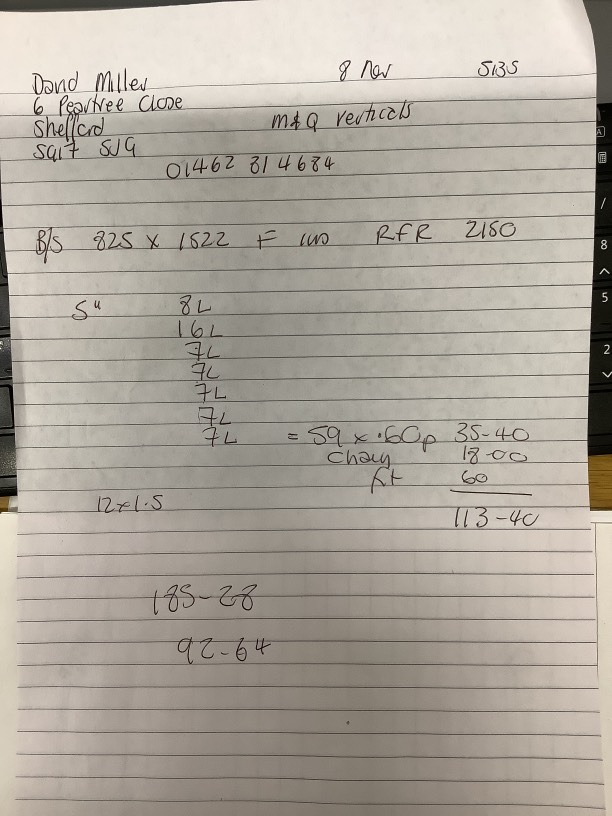 David Miller 8 Nov 5135
6 Peartree Close
Shefford M&Q verticals
SG17 5JG
01462 814684
B/S 825 x 1522 F RFR 2150
5" 8L
16L
7L
7L
7L
7L
7L = 59 x .60p 35-40
Chain 18-00
fit 60
12 x 1.5
113-40
185-28
92-64